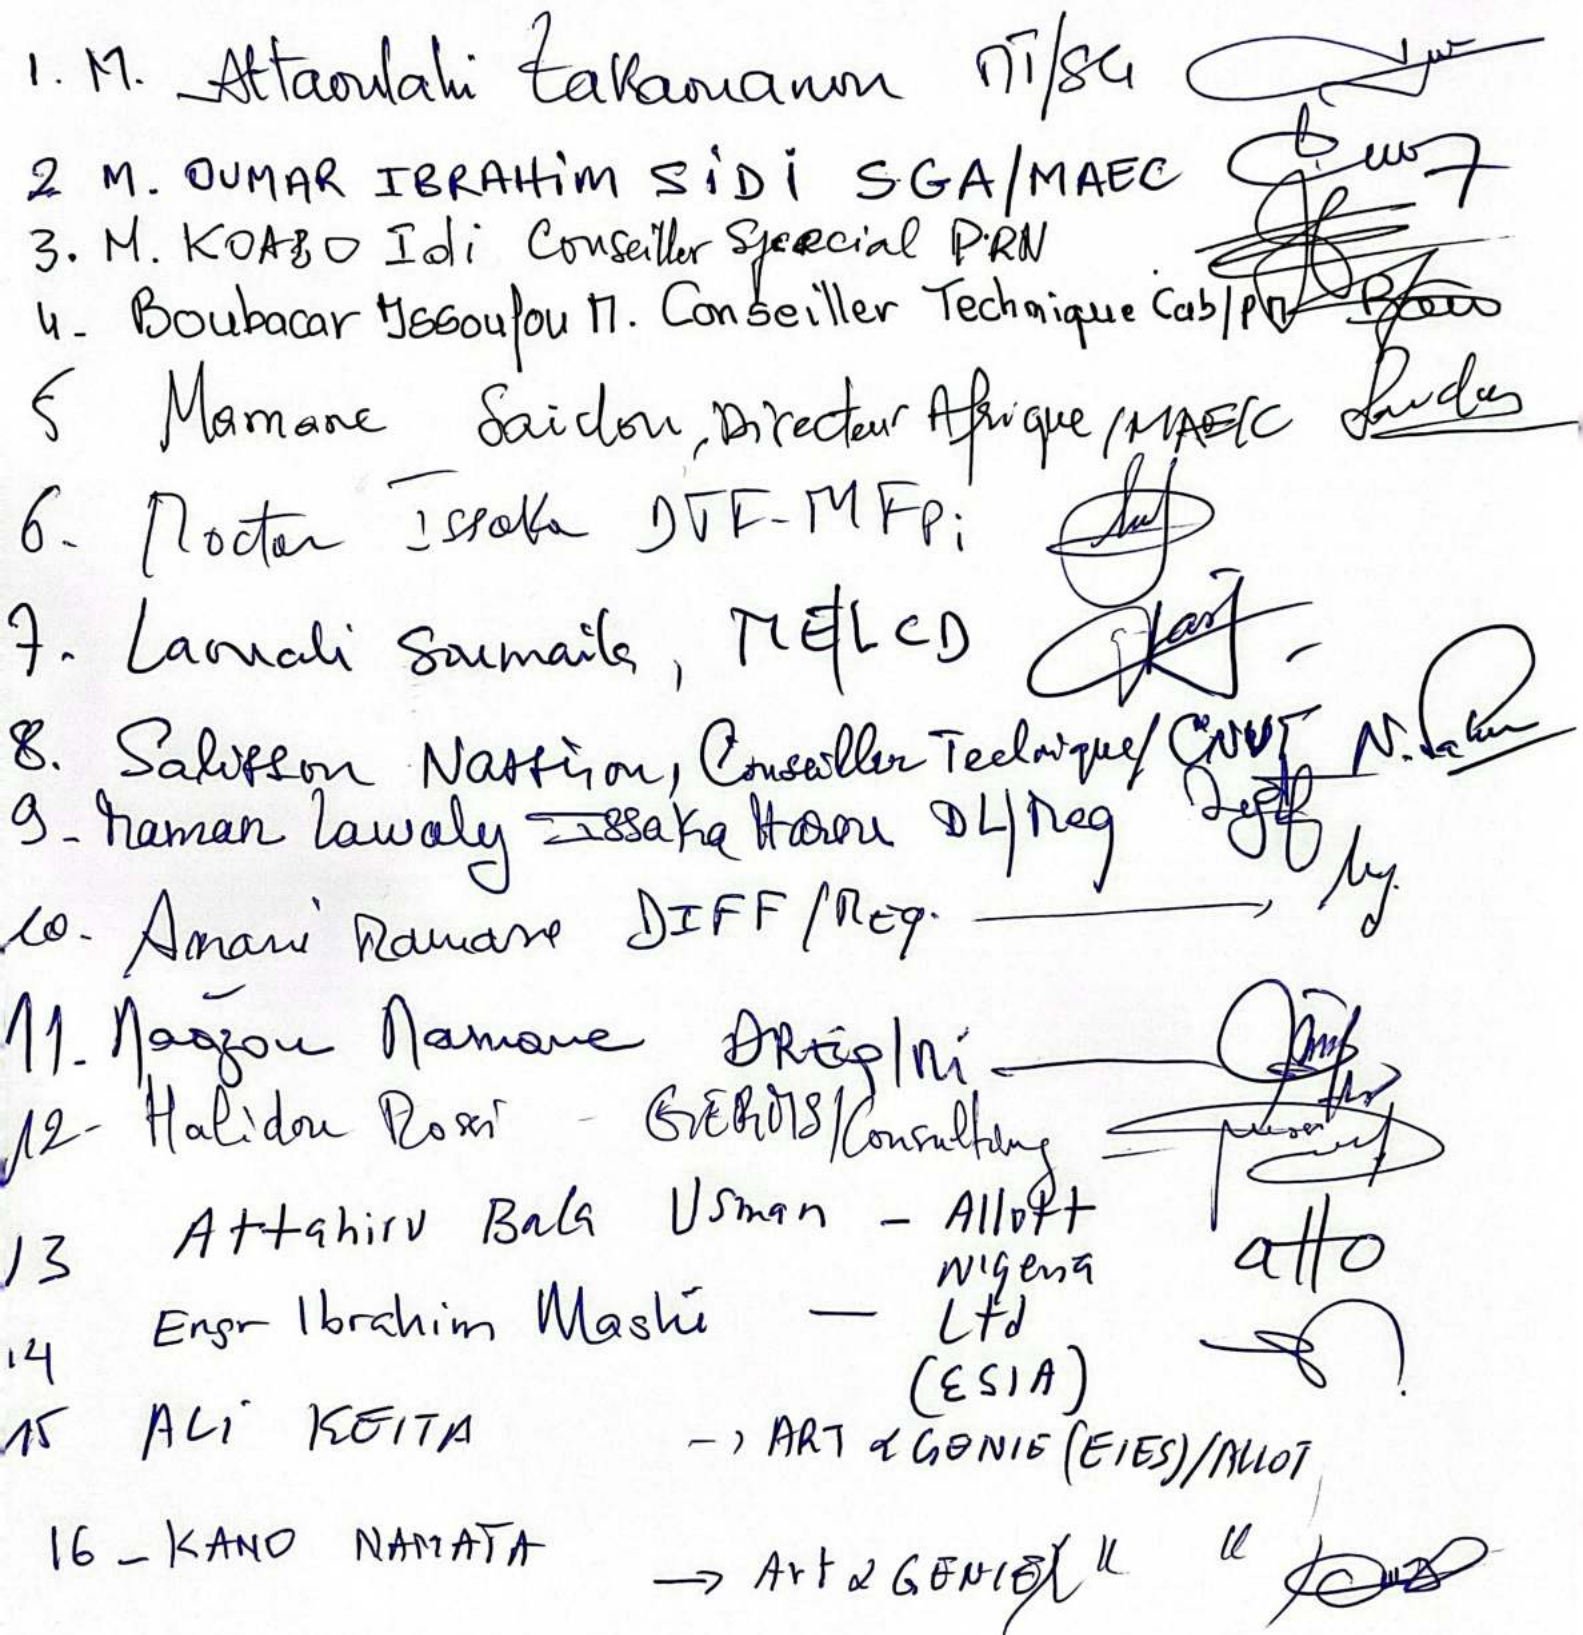 1. M. Attaoulahi Zakaouanou MT/SG
2 M. OUMAR IBRAHiM SiDi SGA/MAEC
3. M. KOABO Idi Conseiller Special PRN
4- Boubacar Issoufou M. Conseiller Technique Cab/PM
5 Mamane Saidou, Directeur Afrique/MAE/C
6- Moctar Issaka DTF-MFPi
7. Laouali Soumaila, ME/LCD
8. Salissou Nassirou, Conseiller Technique/CNUT
9- Maman Lawaly Issaka Harou DL/Meq
10- Amani Mamane DIFF/MEq.
11- Maazou Mamane DREq/Ni
12- Halidou - /Consulting
13 Attahiru Bala Usman - Allott
Nigeria
14 Engr Ibrahim Mashi - Ltd
(ESIA)
15 ALi KEITA -> ART & GENIE (EIES)/ALLOT
16 - KANO NAMATA -> Art & GENIE( " "